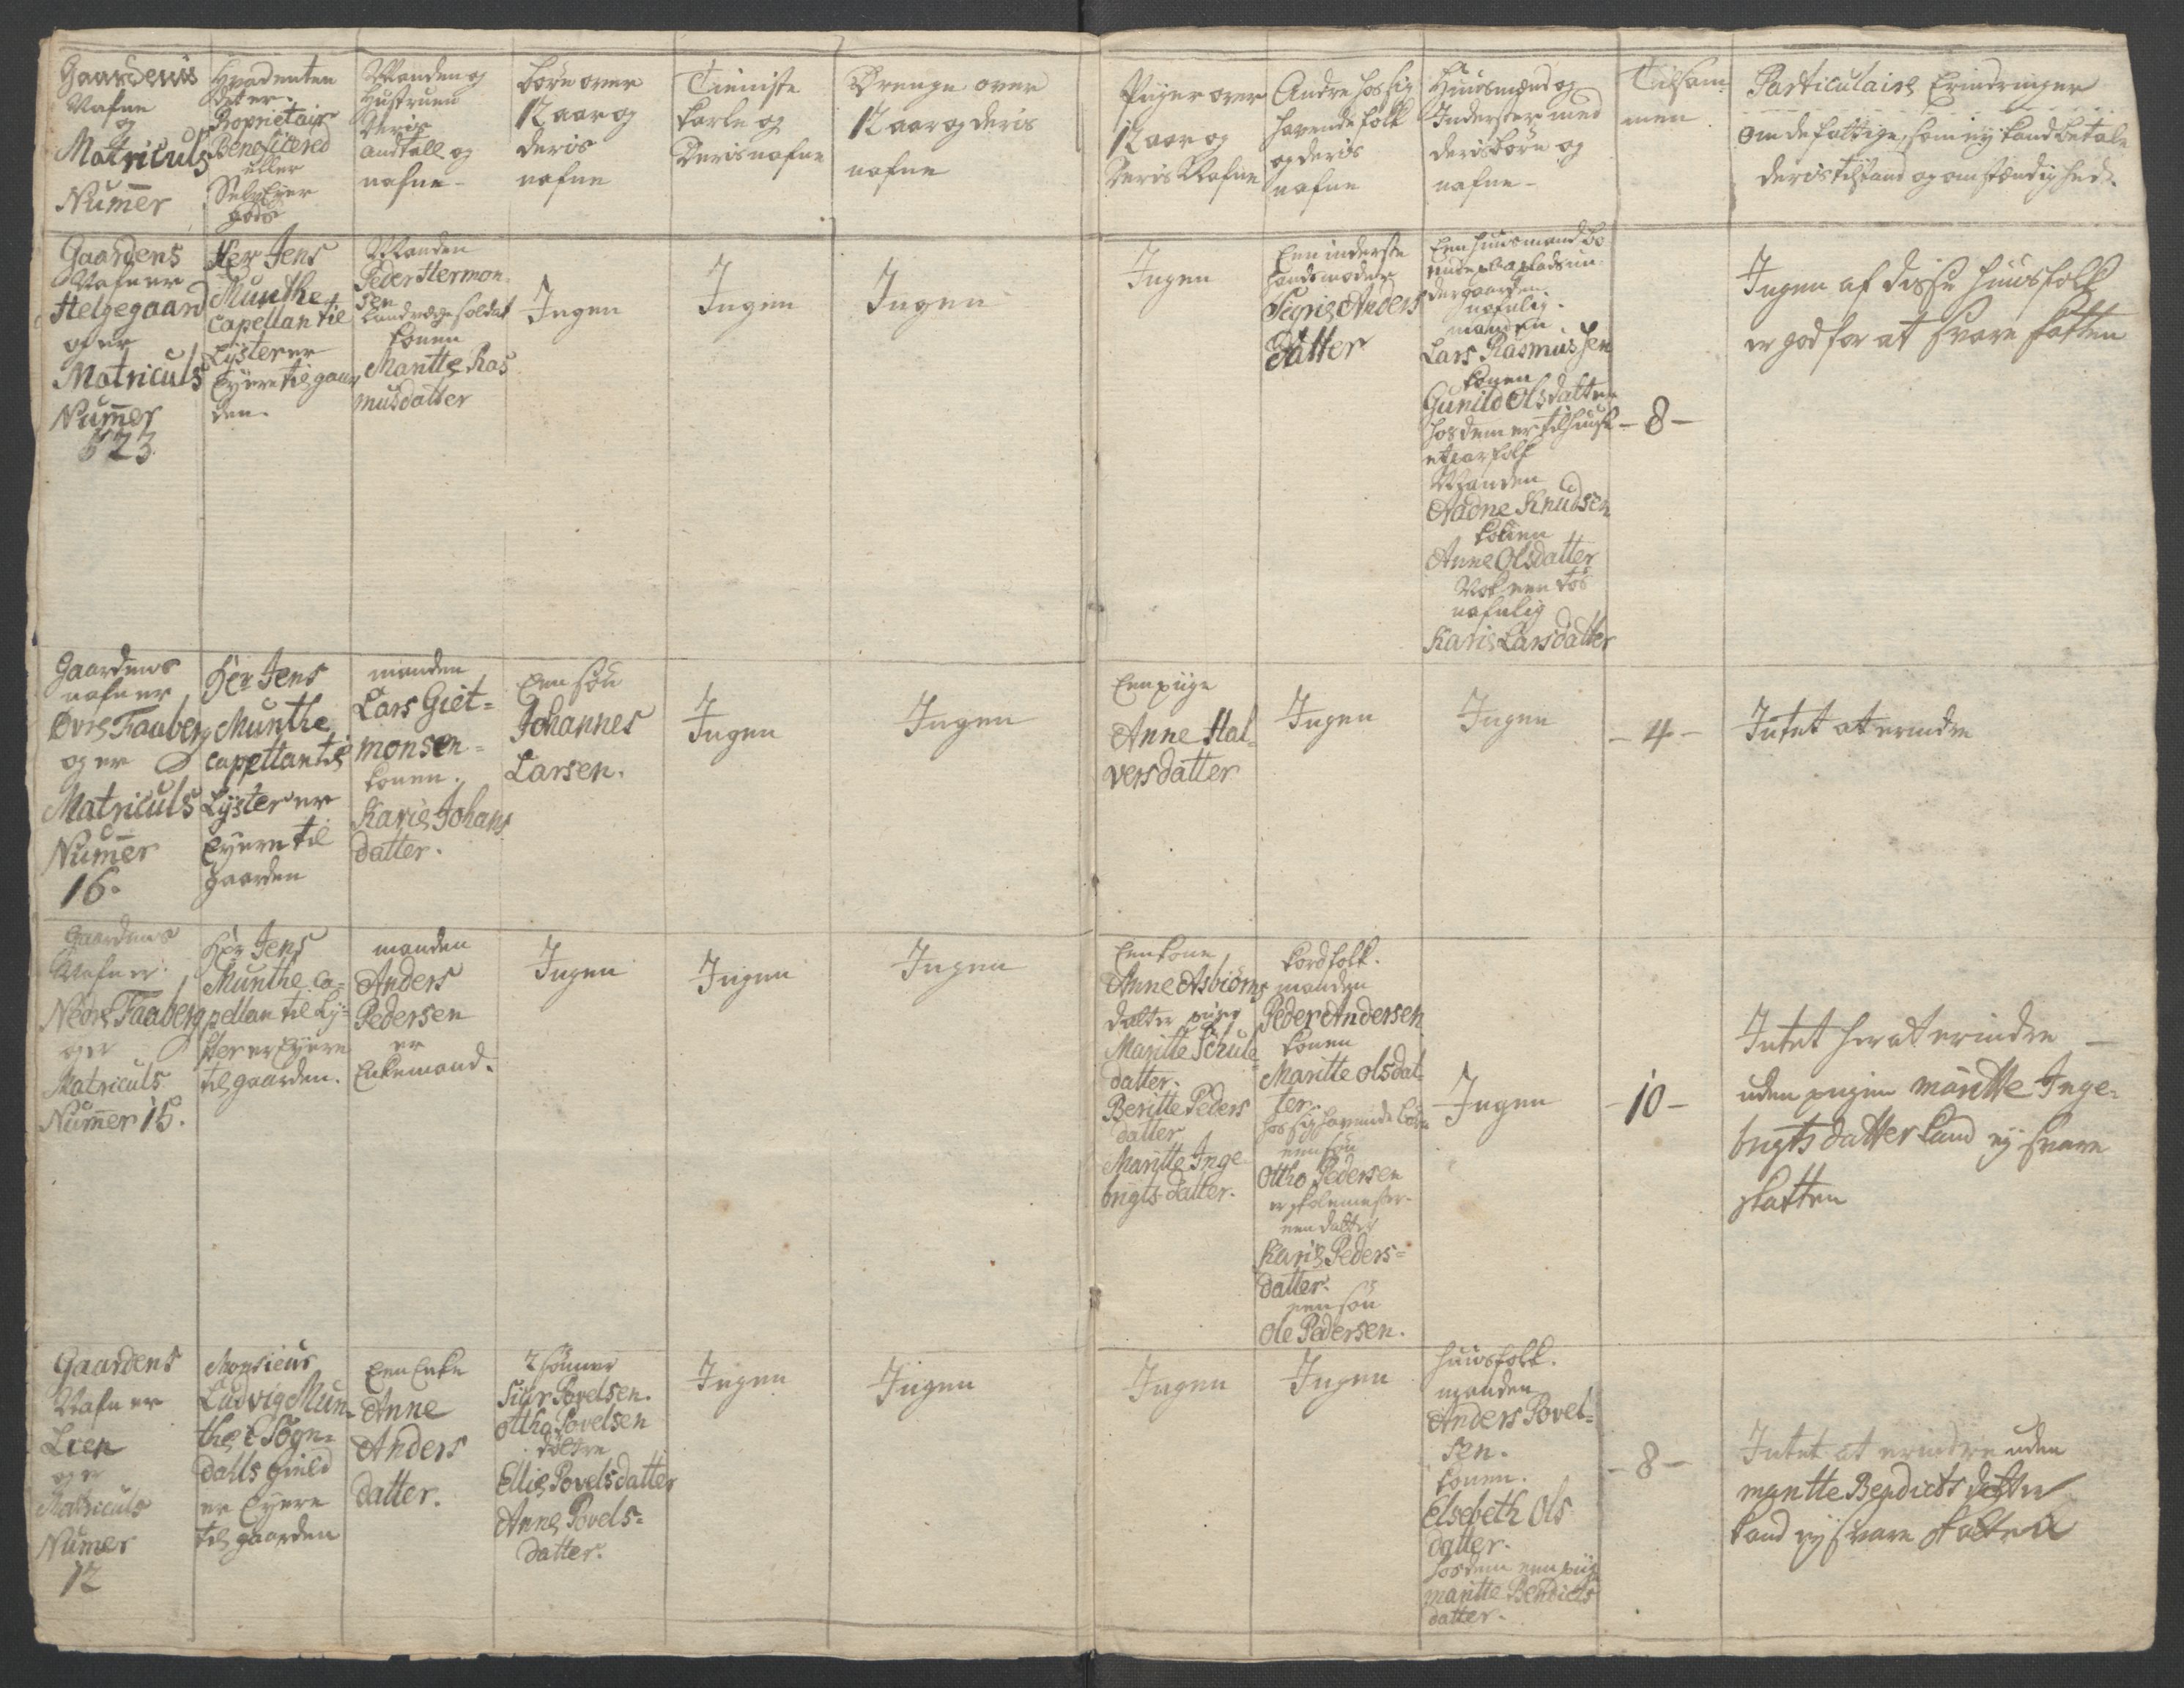 Gaardens
Nafne
og
Matriculs
Numer
Hvadenten
det er
Proprietair
Beneficered
eller
Selv Eyer
gods
Manden og
Hustruen
deris
andtall og
nafne
børn over
12 aar og
deris
nafne
Tieniste
Karle og
deris nafne
Drenge over
12 aar og deris
nafne
Piger over
12 aar og
deris Nafne
Andre hos sig
havende folk
og deris
nafne
Huusmænd og
Inderster med
deris børn og
nafne
Tilsam-
men
Particulaire Erindringer
om de fattige, som ej kand betale
deris tilstand og omstændighed.
Gaardens
Nafn er
Helgegaard
og er
Matriculs
Numer
23
Her Jens
Munthe
Capellan til
Lyster er
Eyere til gaar
den.
Manden
Peder Hermon
sen
Landværge soldat
konen
Maritte Ras
musdatter
Ingen
Ingen
Ingen
Ingen
Een inderste
Sigrie Anders
datter
Een huusmand bo
der gaarden
nafnlig
manden
Lars Rasmussen
konen
Gunild Olsdatter
hos dem er til huuse
et par folk
Manden
Aadne Knudsen
konen
Anne Olsdatter
Nok een tøs
nafnlig
Karie Larsdatter
- 8 -
Ingen af disse huusfolk
er god for at svare skatten
Gaardens
nafn er
Øvre Faaberg
og er
Matriculs
Numer
16.
Her Jens
Munthe
Capellan til
Lyster er
Eyere til
gaarden
manden
Lars Giet=
monsen=
konen.
Karie Johans
datter.
Een søn
Johannes
Larsen.
Ingen
Ingen
Een pige
Anne Hal
versdatter
Ingen
Ingen
- 4 -
Intet at erindre
Gaardens
Nafn er
Nedre Faaberg
og er
Matriculs
Numer 15.
Her Jens
Munthe Ca=
pellan til Ly=
ster er Eyere
til gaarden.
manden
Anders
Pedersen
er
Enkemand.
Ingen
Ingen
Ingen
Een kone
Anne Asbiørns
datter piger
Maritte Schule
datter.
Beritte Peders
datter
Maritte Inge
brigts datter.
folk.
manden
Peder Andersen
konen
Maritte olsdat
ter.
hos sig havende børn
een søn
Ottho Pedersen
er skolemester
een datter
Karie Peders=
datter.
een søn
Ole Pedersen.
Ingen
- 10 -
Intet her at erindre -
uden pigen maritte Inge-
brigts datter kand ej svare
skatten
Gaardens
Nafn er
Lien
og er
Matriculs
Numer
12
Monsieur
Ludvig Mun
the i Sogn=
dalls Gield
er Eyere
til gaarden
Een Enke
Anne
Anders
datter.
2 sønner
Siur Povelsen.
Ottho Povelsen
døttre
Ellie Povelsdatter
Anne Povels=
datter.
Ingen
Ingen
Ingen
Ingen
Huusfolk.
manden
Anders Povel=
sen.
konen.
Elsebeth Ols
datter.
hos dem een pige
maritte Bendicts
datter.
- 8 -
Intet at erindre uden
maritte Bendicts datter
kand ej svare skatten